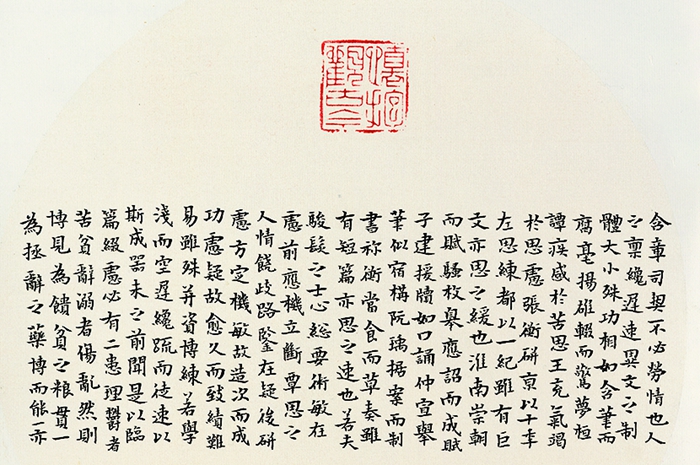 含章司契不必勞情也人
之禀纔遲速異文之制
體大小殊功相如含筆而
腐毫揚雄輟而驚夢桓
譚疾感於苦思王充氣竭
於思慮張衡研京以十年
左思練都以一紀雖有巨
文亦思之緩也淮南崇朝
而賦騷枚皋應詔而成賦
子建援牘如口誦仲宣舉
筆似宿構阮瑀据案而制
書祢衡當食而草奏雖
有短篇亦思之速也若夫
駿髮之士心總要術敏在
慮前應機立斷覃思之
人情饒歧路鑒在疑後研
慮方定機敏故造次而成
功慮疑故愈久而致績難
易雖殊并資博練若學
淺而空遲纔疏而徒速以
斯成器未之前聞是以臨
篇綴慮必有二患理鬱者
苦貧辭溺者傷亂然則
博見為饋貧之糧貫一
為拯辭之藥博而能一亦